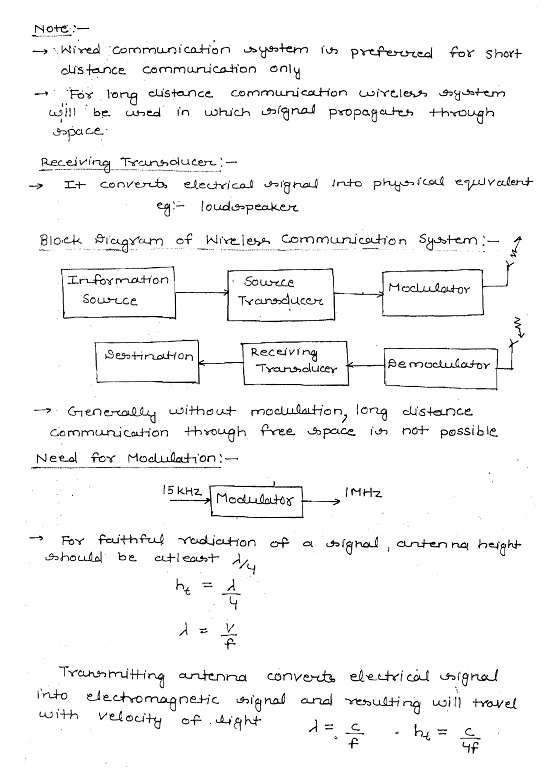 Note:-
→ Wired communication system is preferred for short
distance communication only
→ For long distance communication wireless system
will be used in which signal propagates through
space.
Receiving Transducer:-
→ It converts electrical signal into physical equivalent
eg:- loudspeaker
Block Diagram of Wireless Communication System:-
Information
Source
Source
Transducer
Modulator
Destination
Receiving
Transducer
Demodulator
→ Generally without modulation, long distance
communication through free space is not possible
Need for Modulation:-
15 kHz
Modulator
1MHz
→ For faithful radiation of a signal, antenna height
should be atleast λ/4
h_t = λ/4
λ = V/f
Transmitting antenna converts electrical signal
into electromagnetic signal and resulting will travel
with velocity of light λ = c/f . h_t = c/4f